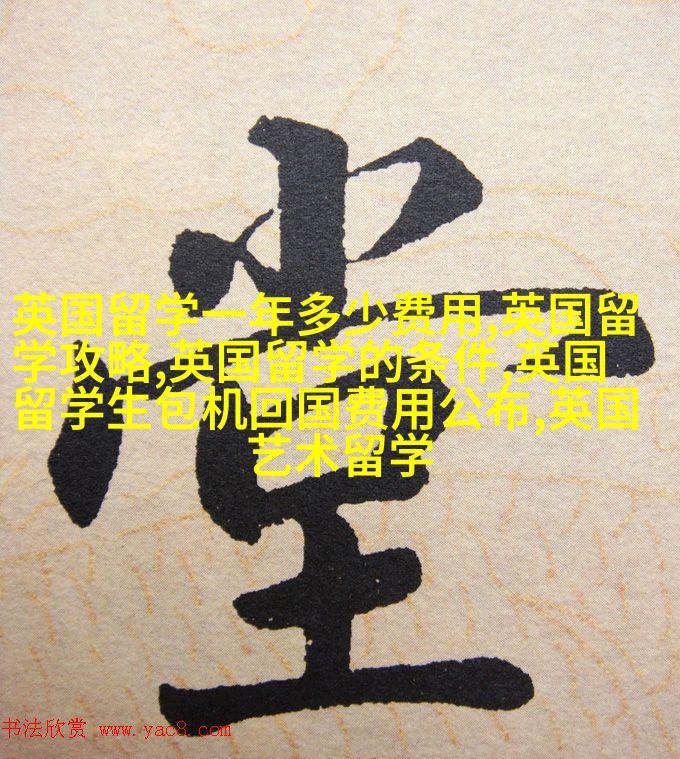 堂
英国留学一年多少费用,英国留
学攻略,英国留学的条件,英国
留学生包机回国费用公布,英国
艺术留学
书法欣赏 www.yac8.com